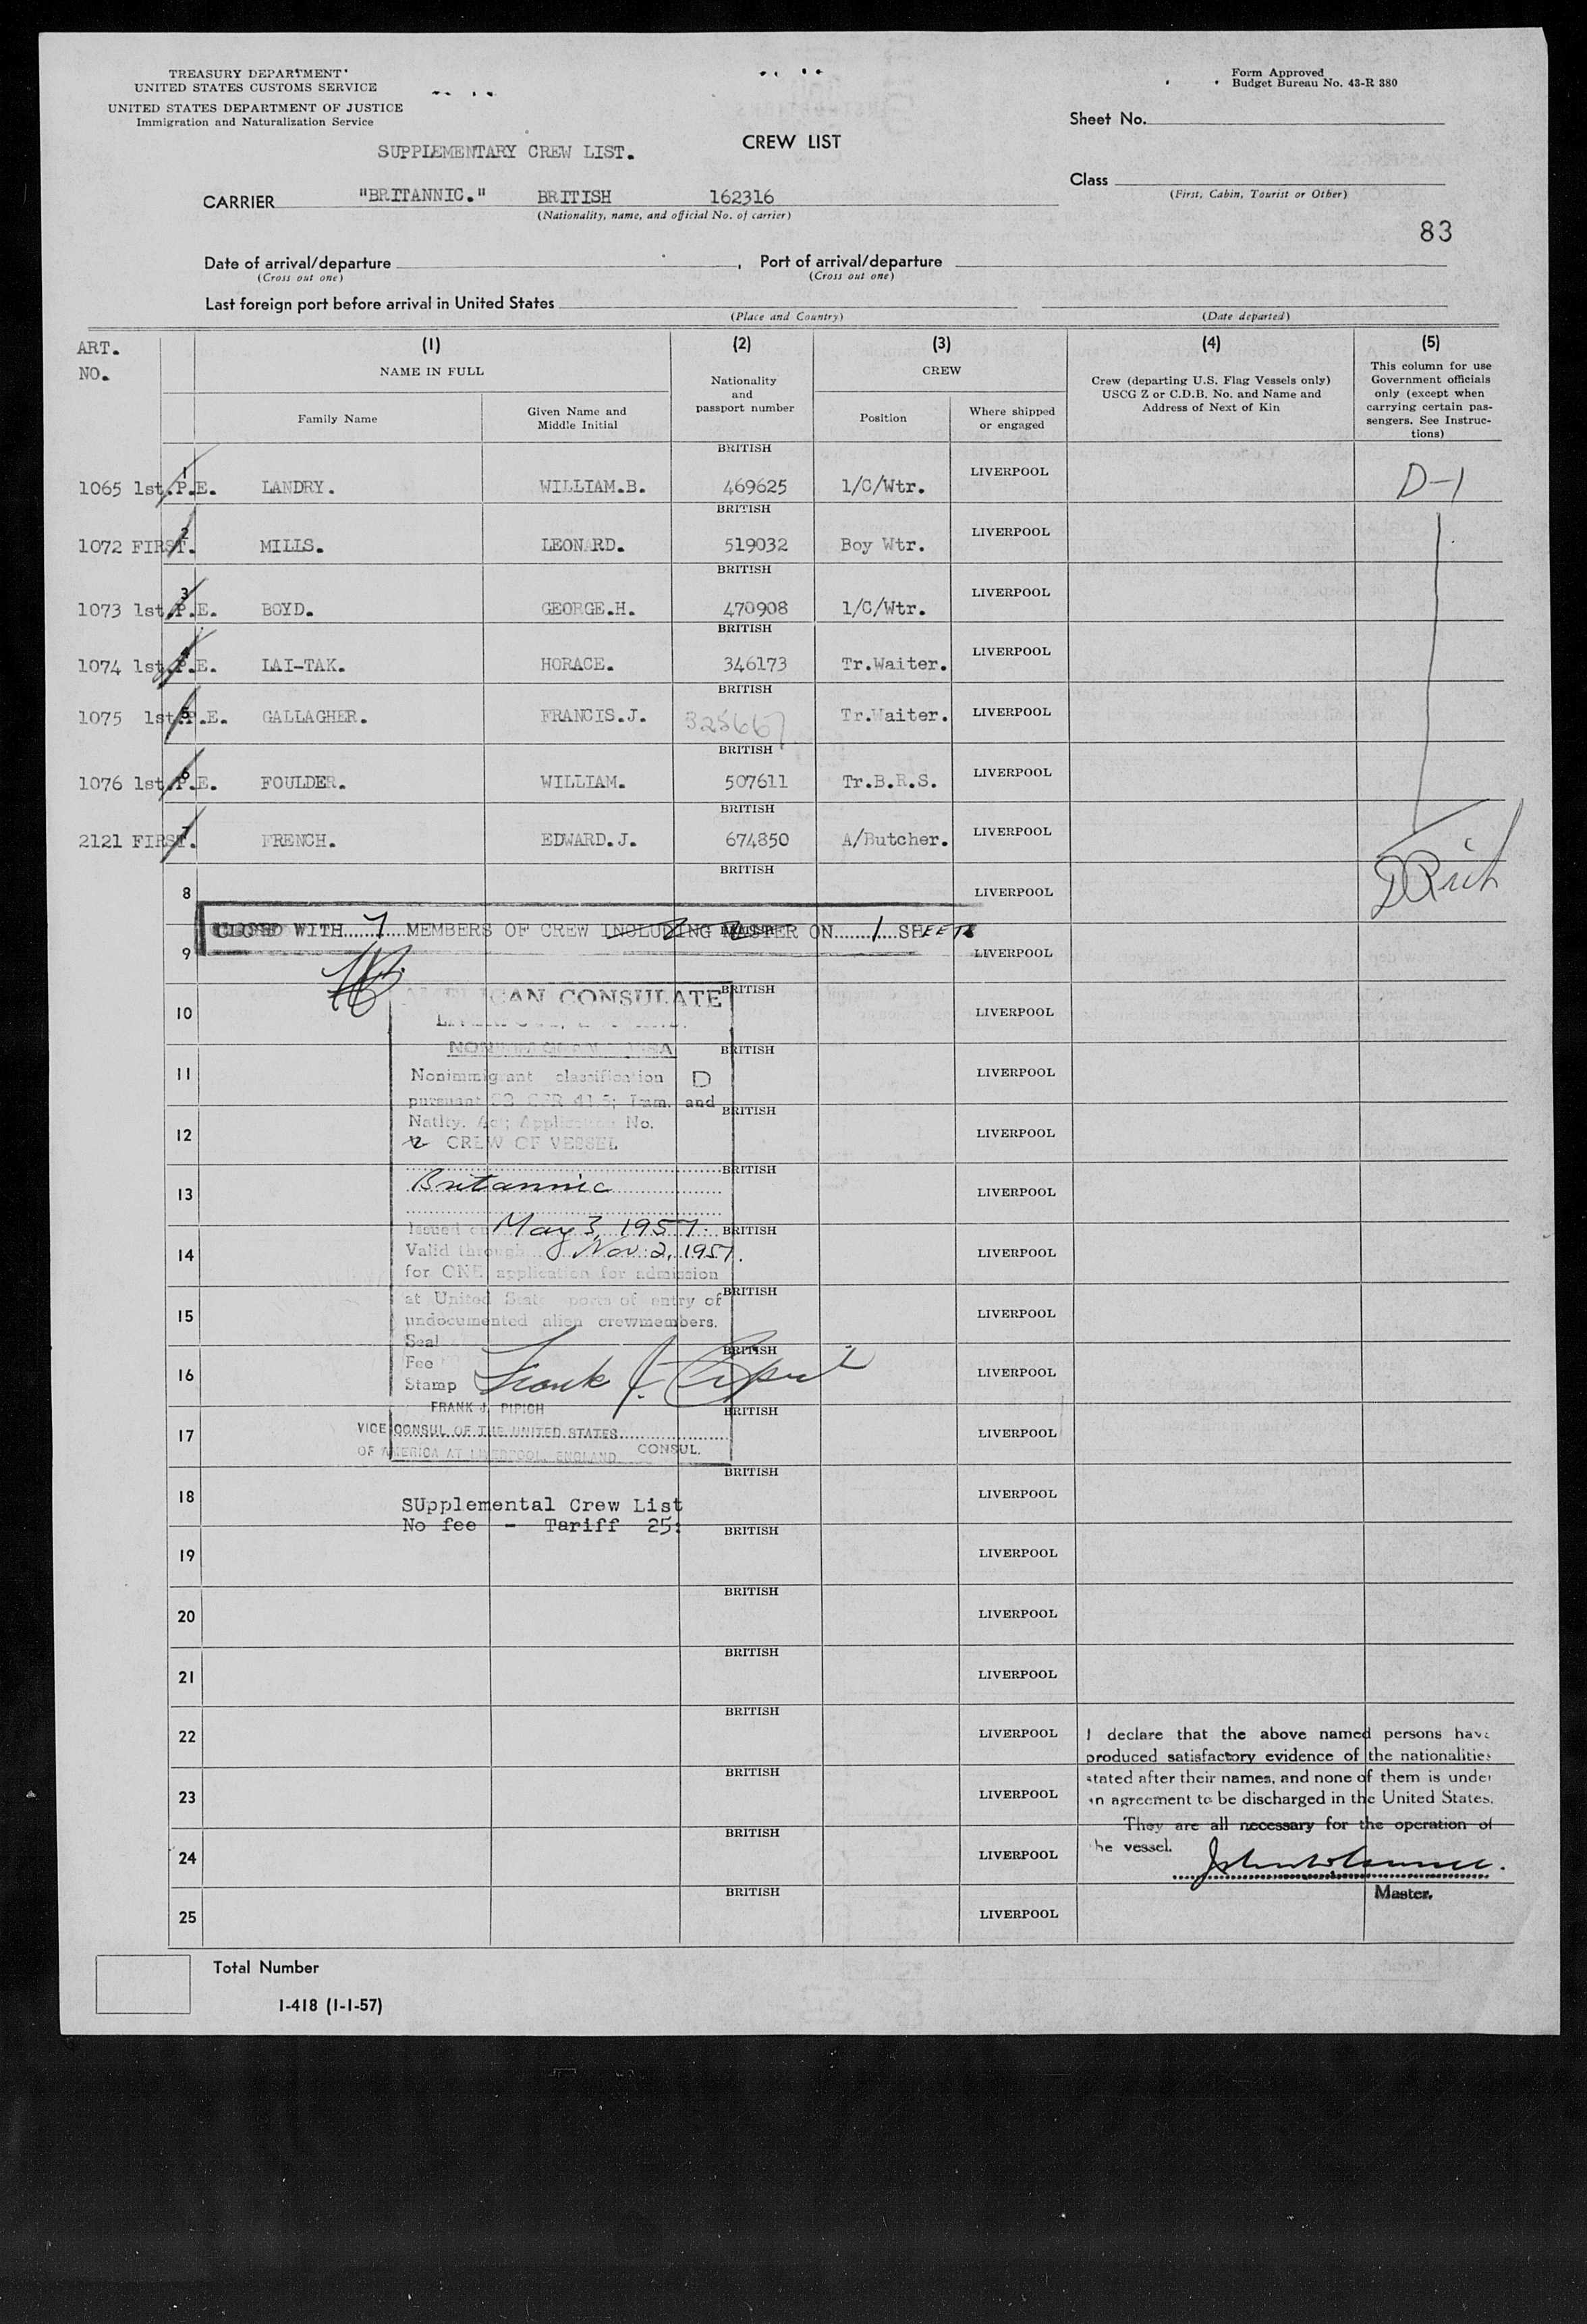 TREASURY DEPARTMENT
UNITED STATES CUSTOMS SERVICE
UNITED STATES DEPARTMENT OF JUSTICE
Immigration and Naturalization Service
Form Approved
Budget Bureau No. 43-R 380
Sheet No.
CREW LIST
SUPPLEMENTARY CREW LIST.
Class
(First, Cabin, Tourist or Other)
CARRIER "BRITANNIC." BRITISH 162316
(Nationality, name, and official No. of carrier)
83
Date of arrival/departure , Port of arrival/departure
(Cross out one) (Cross out one)
Last foreign port before arrival in United States
(Place and Country) (Date departed)
ART. NO.
(1) (2) (3) (4) (5)
NAME IN FULL
Family Name
Given Name and Middle Initial
Nationality and passport number
CREW
Position
Where shipped or engaged
Crew (departing U.S. Flag Vessels only) USCG Z or C.D.B. No. and Name and Address of Next of Kin
This column for use Government officials only (except when carrying certain passengers. See Instructions)
1065 1st.P.E. 1 LANDRY. WILLIAM.B. BRITISH 469625 1/C/Wtr. LIVERPOOL D-1
1072 FIRST. 2 MILLS. LEONARD. BRITISH 519032 Boy Wtr. LIVERPOOL
1073 1st.P.E. 3 BOYD. GEORGE.H. BRITISH 470908 1/C/Wtr. LIVERPOOL
1074 1st.P.E. 4 LAI-TAK. HORACE. BRITISH 346173 Tr.Waiter. LIVERPOOL
1075 1st.P.E. 5 GALLAGHER. FRANCIS.J. BRITISH 325667 Tr.Waiter. LIVERPOOL
1076 1st.P.E. 6 FOULDER. WILLIAM. BRITISH 507611 Tr.B.R.S. LIVERPOOL
2121 FIRST. 7 FRENCH. EDWARD.J. BRITISH 674850 A/Butcher. LIVERPOOL
8 BRITISH LIVERPOOL
CLOSED WITH 7 MEMBERS OF CREW INCLUDING MASTER ON 1 SHEETS
9 BRITISH LIVERPOOL
AMERICAN CONSULATE
10 BRITISH LIVERPOOL
NONIMMIGRANT VISA
11 BRITISH LIVERPOOL
Nonimmigrant classification D
pursuant 22 CFR 41.5; Imm. and
Natlty. Act; Application No.
12 BRITISH LIVERPOOL
CREW OF VESSEL
Britannic
13 BRITISH LIVERPOOL
Issued on May 3, 1957.
14 BRITISH LIVERPOOL
Valid through Nov. 2, 1957.
for ONE application for admission
at United States ports of entry of
15 BRITISH LIVERPOOL
undocumented alien crewmembers.
Seal
Fee
Stamp
16 BRITISH LIVERPOOL
FRANK J. PIPICH
17 BRITISH LIVERPOOL
VICE CONSUL OF THE UNITED STATES
OF AMERICA AT LIVERPOOL, ENGLAND CONSUL.
18 BRITISH LIVERPOOL
SUpplemental Crew List
No fee - Tariff 25:
19 BRITISH LIVERPOOL
20 BRITISH LIVERPOOL
21 BRITISH LIVERPOOL
22 BRITISH LIVERPOOL
23 BRITISH LIVERPOOL
24 BRITISH LIVERPOOL
25 BRITISH LIVERPOOL
I declare that the above named persons have
produced satisfactory evidence of the nationalities
stated after their names, and none of them is under
an agreement to be discharged in the United States.
They are all necessary for the operation of
the vessel.
Master.
Total Number
I-418 (1-1-57)